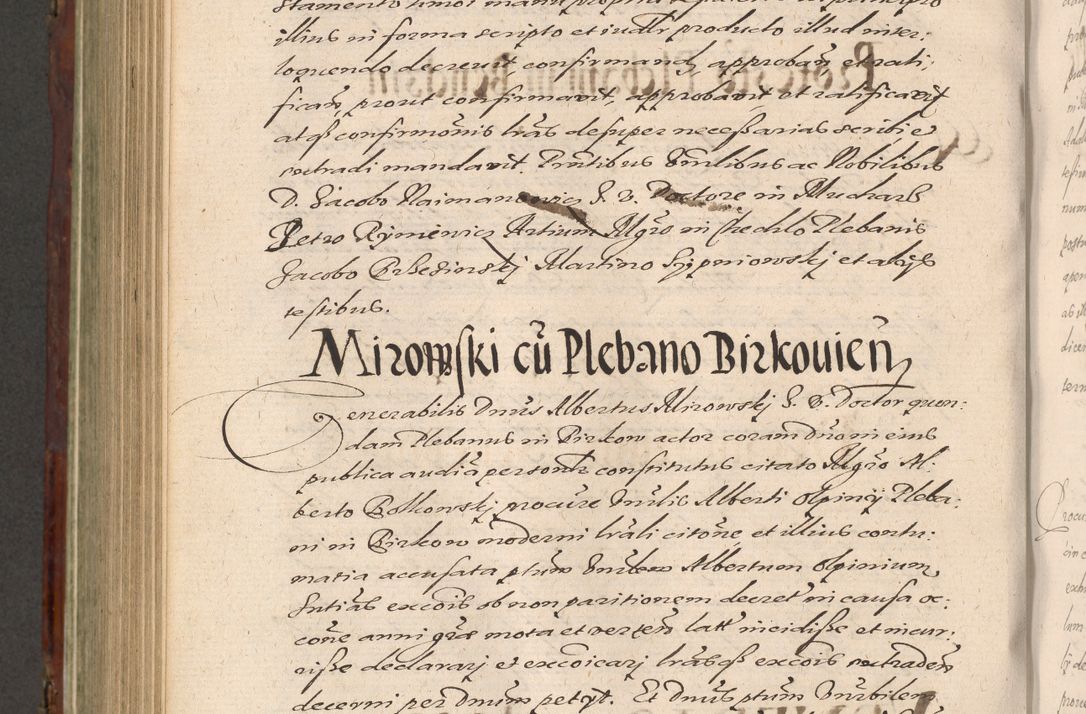 illius in forma scripto et iudlr producto illud inter:
loquendo decrevit, confirmand, approban et rati:
fican, prout confirmavit, approbavit et ratificavit
atqs confirmonis lras desuper necessarias scribi e
extradi mandavit. Pntibus Vnrlibus ac Nobilibus
D. Jacobo Naimanowicz J. V. Doctore in Mucharz
Petro Rymiewicz Artium Mgro in Chechlo Plebanis
Jacobo Brzezinskj Martino Sypniowskj et alijs
testibus.
Mirowski cū Plebano Birkouien
Venerabilis Dnus Albertus Mirowskj J. V. Doctor quon:
dam Plebanus in Birkow actor coram Dno in eius
publica audia personlr constitutus citato Mgro Al:
berto Bolkowskj procure Vnrlis Alberti Olpinij Pleba:
ni in Birkow moderni lrali citone et illius contu:
matia accusata ptum Vnrlem Albertum Olpinium
Sntias excois ob non paritionem decret in causa oc:
cone anni grae mota et verten latt incidisse et incur:
risse declararj et excoicarj lrasqs excois extraden
decerni per Dnum petyt. Et Dnus ptum Vnrbilem